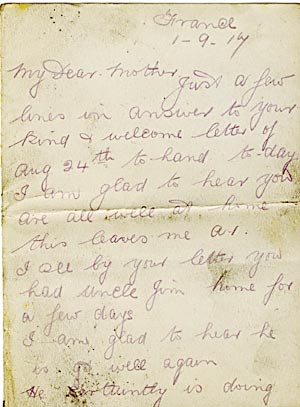 France
1-9-17
My Dear Mother Just a few
lines in answer to your
kind & welcome letter of
Aug 24th to-hand to-day
I am glad to hear you
are all well at home
this leaves me a.1.
I see by your letter you
had uncle Jim home for
a few days
I am glad to hear he
is well again
He is doing